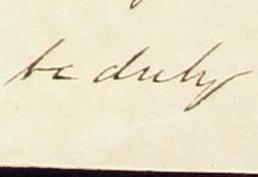 be duly